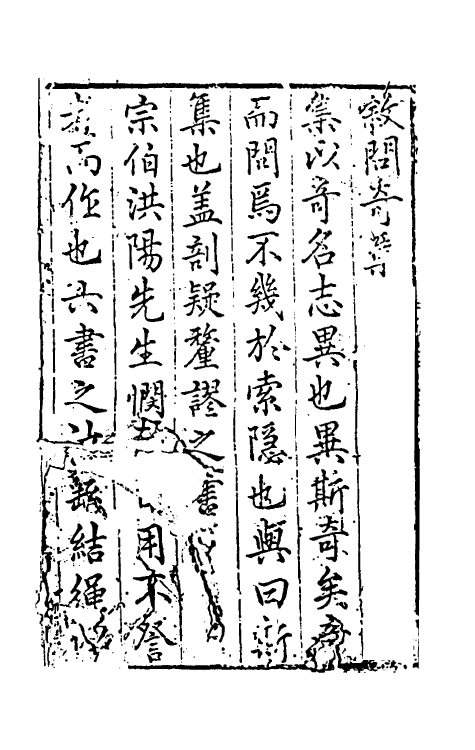 問奇集
集以奇名志異也異斯奇矣奇
而問焉不幾於索隱也與曰
集也蓋剖疑釐謬之書
宗伯洪陽先生憫 用不
而作也其書之 結繩